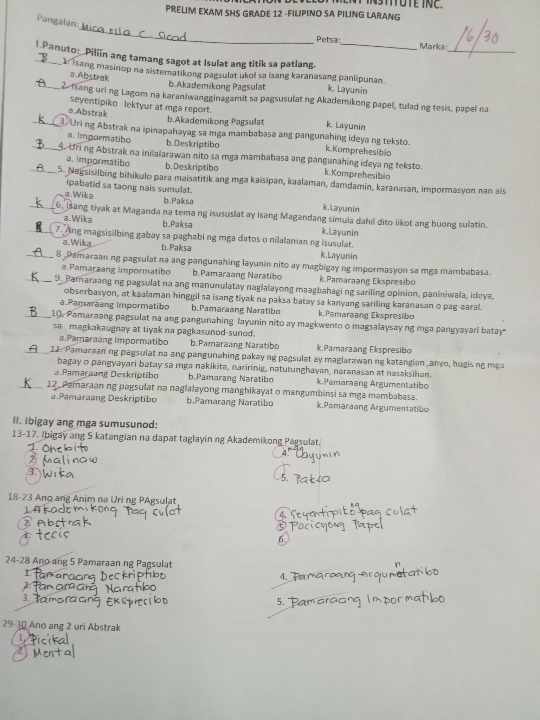 DEVELOPMENT INSTITUTE INC.
PRELIM EXAM SHS GRADE 12 -FILIPINO SA PILING LARANG
Pangalan: Mica ella C. Sicad
Petsa:
Marka: 16/30
I.Panuto: Piliin ang tamang sagot at Isulat ang titik sa patlang.
B 1. Isang masinop na sistematikong pagsulat ukol sa isang karanasang panlipunan.
a.Abstrak b.Akademikong Pagsulat k. Layunin
A 2. Isang uri ng Lagom na karaniwangginagamit sa pagsusulat ng Akademikong papel, tulad ng tesis, papel na
seyentipiko lektyur at mga report.
a.Abstrak b.Akademikong Pagsulat k. Layunin
K 3. Uri ng Abstrak na ipinapahayag sa mga mambabasa ang pangunahing ideya ng teksto.
a. Impormatibo b.Deskriptibo k.Komprehesibio
B 4. Uri ng Abstrak na inilalarawan nito sa mga mambabasa ang pangunahing ideya ng teksto.
a. Impormatibo b.Deskriptibo k.Komprehesibio
A 5. Nagsisilbing bihikulo para maisatitik ang mga kaisipan, kaalaman, damdamin, karanasan, impormasyon nan ais
ipabatid sa taong nais sumulat.
a.Wika b.Paksa k.Layunin
K 6. Isang tiyak at Maganda na tema ng isususlat ay isang Magandang simula dahil dito iikot ang buong sulatin.
a.Wika b.Paksa k.Layunin
7. Ang magsisilbing gabay sa paghabi ng mga datos o nilalaman ng isusulat.
a.Wika b.Paksa k.Layunin
A 8. Pamaraan ng pagsulat na ang pangunahing layunin nito ay magbigay ng impormasyon sa mga mambabasa.
a.Pamaraang Impormatibo b.Pamaraang Naratibo k.Pamaraang Ekspresibo
K 9. Pamaraang ng pagsulat na ang manunulatay naglalayong maagbahagi ng sariling opinion, paniniwala, ideya,
obserbasyon, at kaalaman hinggil sa isang tiyak na paksa batay sa kanyang sariling karanasan o pag-aaral.
a.Pamaraang Impormatibo b.Pamaraang Naratibo k.Pamaraang Ekspresibo
B 10. Pamaraang pagsulat na ang pangunahing layunin nito ay magkwento o magsalaysay ng mga pangyayari batay
sa magkakaugnay at tiyak na pagkasunod-sunod.
a.Pamaraang Impormatibo b.Pamaraang Naratibo k.Pamaraang Ekspresibo
A 11. Pamaraan ng pagsulat na ang pangunahing pakay ng pagsulat ay maglarawan ng katangian ,anyo, hugis ng mga
bagay o pangyayari batay sa mga nakikita, naririnig, natutunghayan, naranasan at nasaksihan.
a.Pamaraang Deskriptibo b.Pamarang Naratibo k.Pamaraang Argumentatibo
K 12. Pamaraan ng pagsulat na naglalayong manghikayat o mangumbinsi sa mga mambabasa.
a.Pamaraang Deskriptibo b.Pamarang Naratibo k.Pamaraang Argumentatibo
II. Ibigay ang mga sumusunod:
13-17. Ibigay ang 5 katangian na dapat taglayin ng Akademikong Pagsulat.
1. Obhebito
2. Malinaw
3. Wika
4. Layunin
5. Paksa
18-23 Ano ang Anim na Uri ng PAgsulat
1. Akademikong Pag sulat
2. Abstrak
3. tesis
4. Seyantipiko pag sulat
5. Pocicyong Papel
6.
24-28 Ano ang 5 Pamaraan ng Pagsulat
1. Pamaraang Deskriptibo
2. Pamaraang Naratibo
3. Pamaraang Ekspresibo
4. Pamaraang argumentatibo
5. Pamaraang Impormatibo
29-30 Ano ang 2 uri Abstrak
1. Picikal
2. Mental